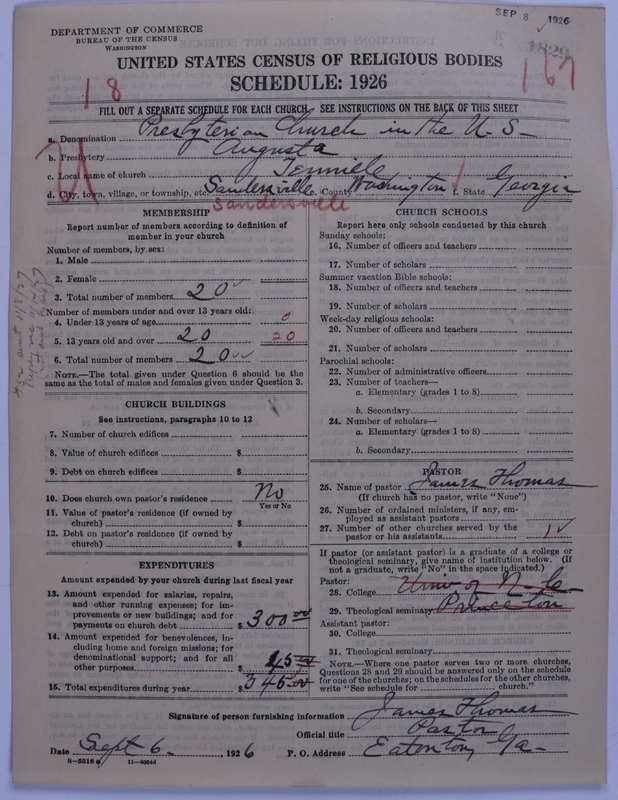 DEPARTMENT OF COMMERCE
BUREAU OF THE CENSUS
WASHINGTON
SEP 8 1926
1829
UNITED STATES CENSUS OF RELIGIOUS BODIES
SCHEDULE: 1926
18
167
FILL OUT A SEPARATE SCHEDULE FOR EACH CHURCH. SEE INSTRUCTIONS ON THE BACK OF THIS SHEET
a. Denomination Presbyterian Church in the U-S-
b. Presbytery Augusta
c. Local name of church Tennille
d. City, town, village, or township, etc. Sandersville e. County Washington f. State Georgia
Sandersville
MEMBERSHIP
Report number of members according to definition of
member in your church
Number of members, by sex:
1. Male
2. Female
3. Total number of members 20
Number of members under and over 13 years old:
4. Under 13 years of age 0
5. 13 years old and over 20 20
6. Total number of members 20
NOTE.—The total given under Question 6 should be
same as the total of males and females given under Question 3.
CHURCH BUILDINGS
See instructions, paragraphs 10 to 12
7. Number of church edifices
8. Value of church edifices $
9. Debt on church edifices $
10. Does church own pastor's residence No
Yes or No
11. Value of pastor's residence (if owned by
church) $
12. Debt on pastor's residence (if owned by
church) $
EXPENDITURES
Amount expended by your church during last fiscal year
13. Amount expended for salaries, repairs,
and other running expenses; for im-
provements or new buildings; and for
payments on church debt $ 300 00
14. Amount expended for benevolences, in-
cluding home and foreign missions; for
denominational support; and for all
other purposes 45 00
15. Total expenditures during year $ 345 00
CHURCH SCHOOLS
Report here only schools conducted by this church
Sunday schools:
16. Number of officers and teachers
17. Number of scholars
Summer vacation Bible schools:
18. Number of officers and teachers
19. Number of scholars
Week-day religious schools:
20. Number of officers and teachers
21. Number of scholars
Parochial schools:
22. Number of administrative officers
23. Number of teachers—
a. Elementary (grades 1 to 8)
b. Secondary
24. Number of scholars—
a. Elementary (grades 1 to 8)
b. Secondary
PASTOR
25. Name of pastor James Thomas
(If church has no pastor, write "None")
26. Number of ordained ministers, if any, em-
ployed as assistant pastors
27. Number of other churches served by the
pastor or his assistants 1
If pastor (or assistant pastor) is a graduate of a college or
theological seminary, give name of institution below. (If
not a graduate, write "No" in the space indicated.)
Pastor:
28. College Univ of N. C.
29. Theological seminary Princeton
Assistant pastor:
30. College
31. Theological seminary
NOTE.—Where one pastor serves two or more churches,
Questions 28 and 29 should be answered only on the schedule
for one of the churches; on the schedules for the other churches,
write "See schedule for church."
Signature of person furnishing information James Thomas
Official title Pastor
Date Sept 6, 1926 P. O. Address Eatonton, Ga-
8-5518a 11-9054d